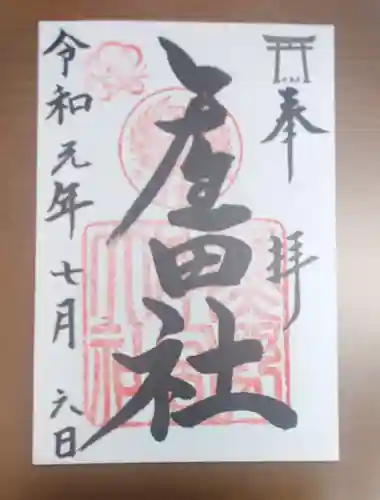 奉拝
産田社
令和元年七月六日